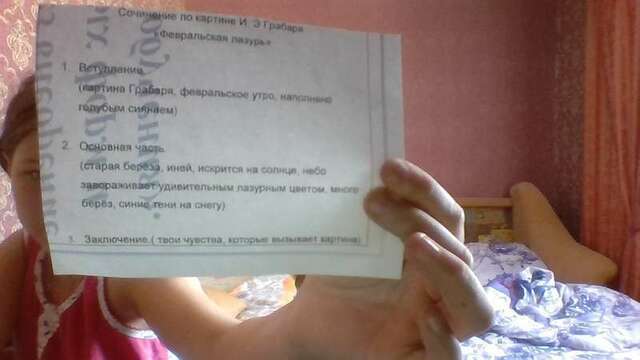 Сочинение по картине И. Э Грабаря
«Февральская лазурь»
1. Вступление
(картина Грабаря, февральское утро, наполнено
голубым сиянием)
2. Основная часть
(старая берёза, иней, искрится на солнце, небо
завораживает удивительным лазурным цветом, много
берёз, синие тени на снегу)
3. Заключение.( твои чувства, которые вызывает картина)